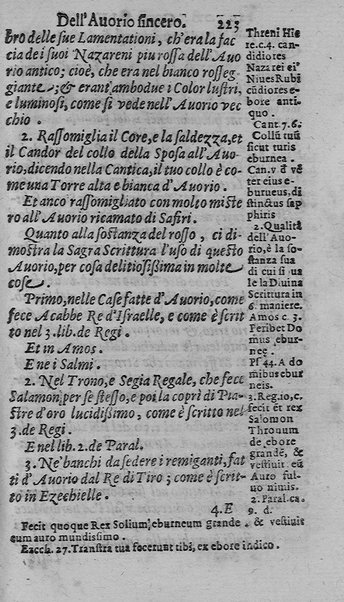 Dell'Auorio sincero. 223
bro delle sue Lamentationi, ch'era la fac
cia de i suoi Nazareni piu rossa dell'Auo
rio antico; cioè, che era nel bianco rosseg
giante, & erant'ambodue i Color lustri,
e luminosi, come si vede nell'Auorio vec
chio.
2. Rassomiglia il Core, e la saldezza, et
il Candor del collo della Sposa all'Auo-
rio, dicendo nella Cantica, il tuo collo è co-
me una Torre alta e bianca d'Auorio.
Et anco rassomigliato con molto miste
ro all'Auorio ricamato di Safiri.
Quanto alla sostanza del rosso, ci di-
mostra la Sagra Scrittura l'uso di questo
Auorio, per cosa delitiosissima in molte
cose.
Primo, nelle Case fatte d'Auorio, come
fece Acabbe Re d'Israelle, e come è scrit
to nel 3. lib. de Regi.
Et in Amos.
E ne i Salmi.
2. Nel Trono, e Segia Regale, che fece
Salamon, per se stesso, e poi la coprì di Pia-
stre d'oro lucidissimo, come è scritto nel
3. de Regi.
E nel lib. 2. de Paral.
3. Ne' banchi da sedere i remiganti, fat
ti d'Auorio dal Re di Tiro; come è scrit-
to in Ezechielle.
4. E
Threni Hie
re. c. 4. can-
didiores
Nazarei ei9
Niues Rubi
cũdiores e-
bore anti-
quo.
Cant. 7. 6.
Collũ tuũ
sicut turis
eburnea.
Can. v ẽ vẽ
ter eius e-
burneus, di
stinctus sa-
phiris
2. Qualità
dell'Auo-
rio, è la so-
stanza sua
di cui si ua
le la Diuina
Scrittura in
6. maniere.
Amos c. 3.
Peribet Do
mus ,ebur-
nee.
Psf 44. A do
mibus ebur
neis.
3. Reg. io, c.
fecit et rex
Salomon
Throuum
de ,ebore
grandẽ, &
vestiuit eũ
Auro ful-
uo nimis.
2. Paral. ca.
9. d.
Fecit quoque Rex Solium, eburneum grande. & vestiuit
eum auro mundissimo.
Ezcch. 27. Transtra tua fecerunt tibi, ex ebore indico.